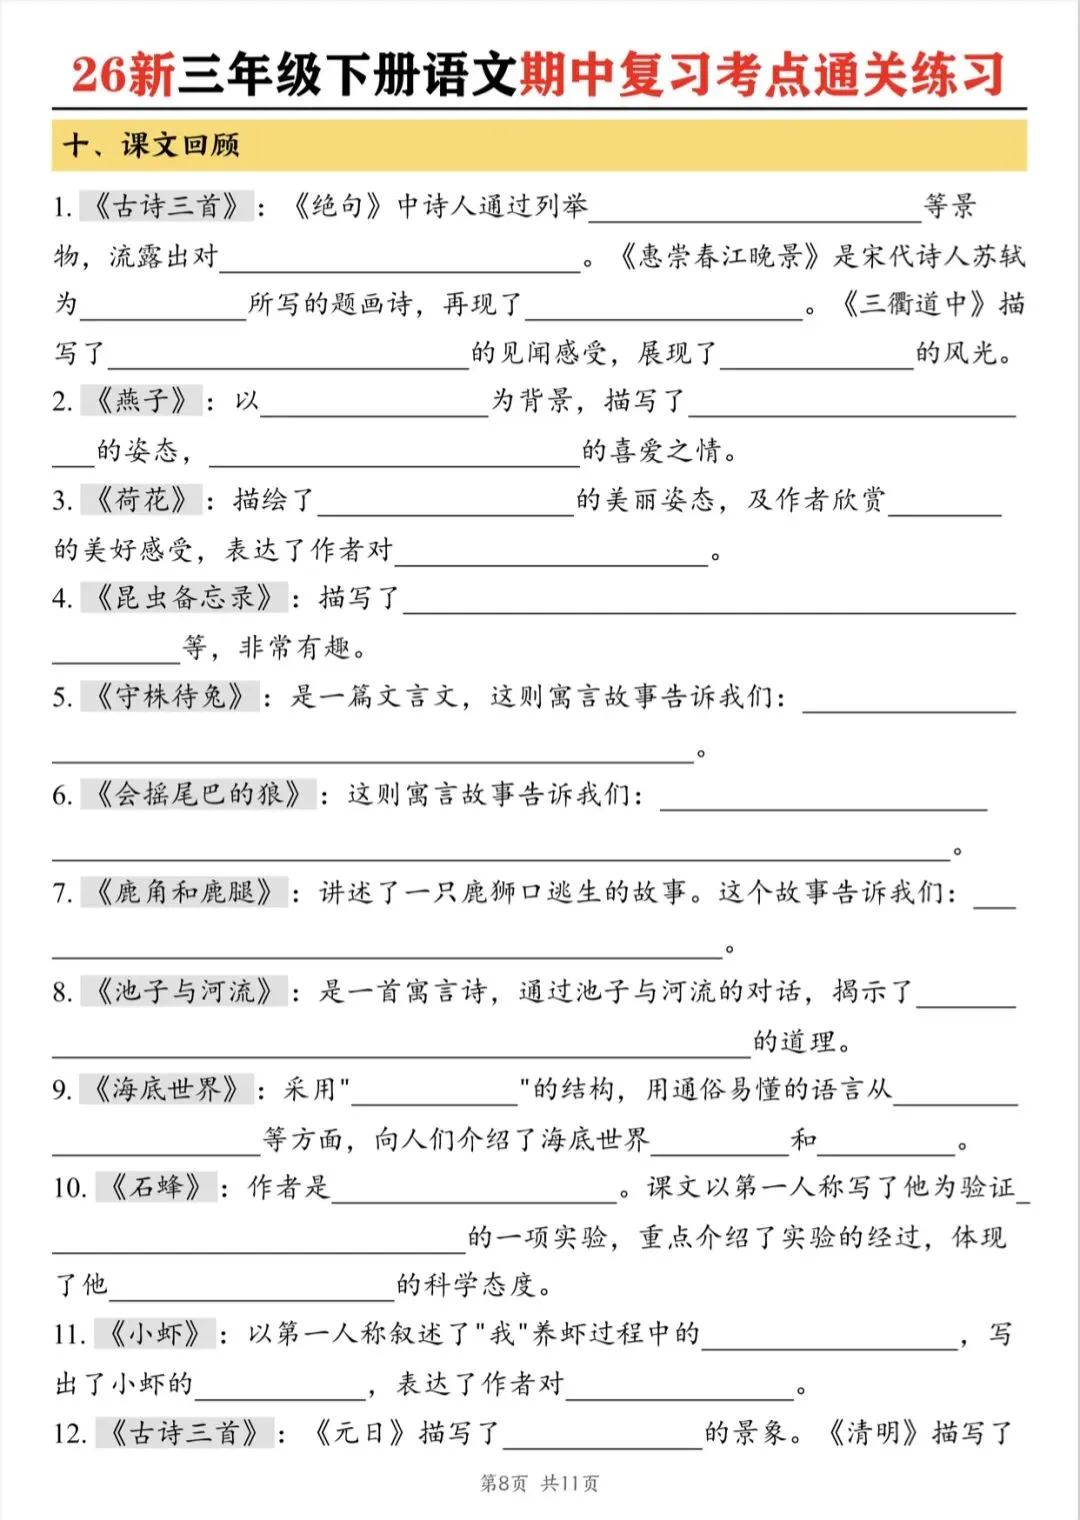 26新三年级下册语文期中复习考点通关练习
十、课文回顾
1. 《古诗三首》：《绝句》中诗人通过列举____________________等景
物，流露出对______________________。《惠崇春江晚景》是宋代诗人苏轼
为__________所写的题画诗，再现了_________________。《三衢道中》描
写了______________________的见闻感受，展现了____________的风光。
2. 《燕子》：以______________为背景，描写了____________________
___的姿态，______________________的喜爱之情。
3. 《荷花》：描绘了________________的美丽姿态，及作者欣赏_______
的美好感受，表达了作者对___________________。
4. 《昆虫备忘录》：描写了_____________________________________
________等，非常有趣。
5. 《守株待兔》：是一篇文言文，这则寓言故事告诉我们：_____________
_______________________________________。
6. 《会摇尾巴的狼》：这则寓言故事告诉我们：____________________
______________________________________________________。
7. 《鹿角和鹿腿》：讲述了一只鹿狮口逃生的故事。这个故事告诉我们：___
________________________________________。
8. 《池子与河流》：是一首寓言诗，通过池子与河流的对话，揭示了______
__________________________________________的道理。
9. 《海底世界》：采用"__________"的结构，用通俗易懂的语言从________
_____________等方面，向人们介绍了海底世界________和________。
10. 《石蜂》：作者是_________________。课文以第一人称写了他为验证_
_________________________的一项实验，重点介绍了实验的经过，体现
了他_________________的科学态度。
11. 《小虾》：以第一人称叙述了"我"养虾过程中的________________，写
出了小虾的__________，表达了作者对______________。
12. 《古诗三首》：《元日》描写了____________的景象。《清明》描写了
第8页 共11页